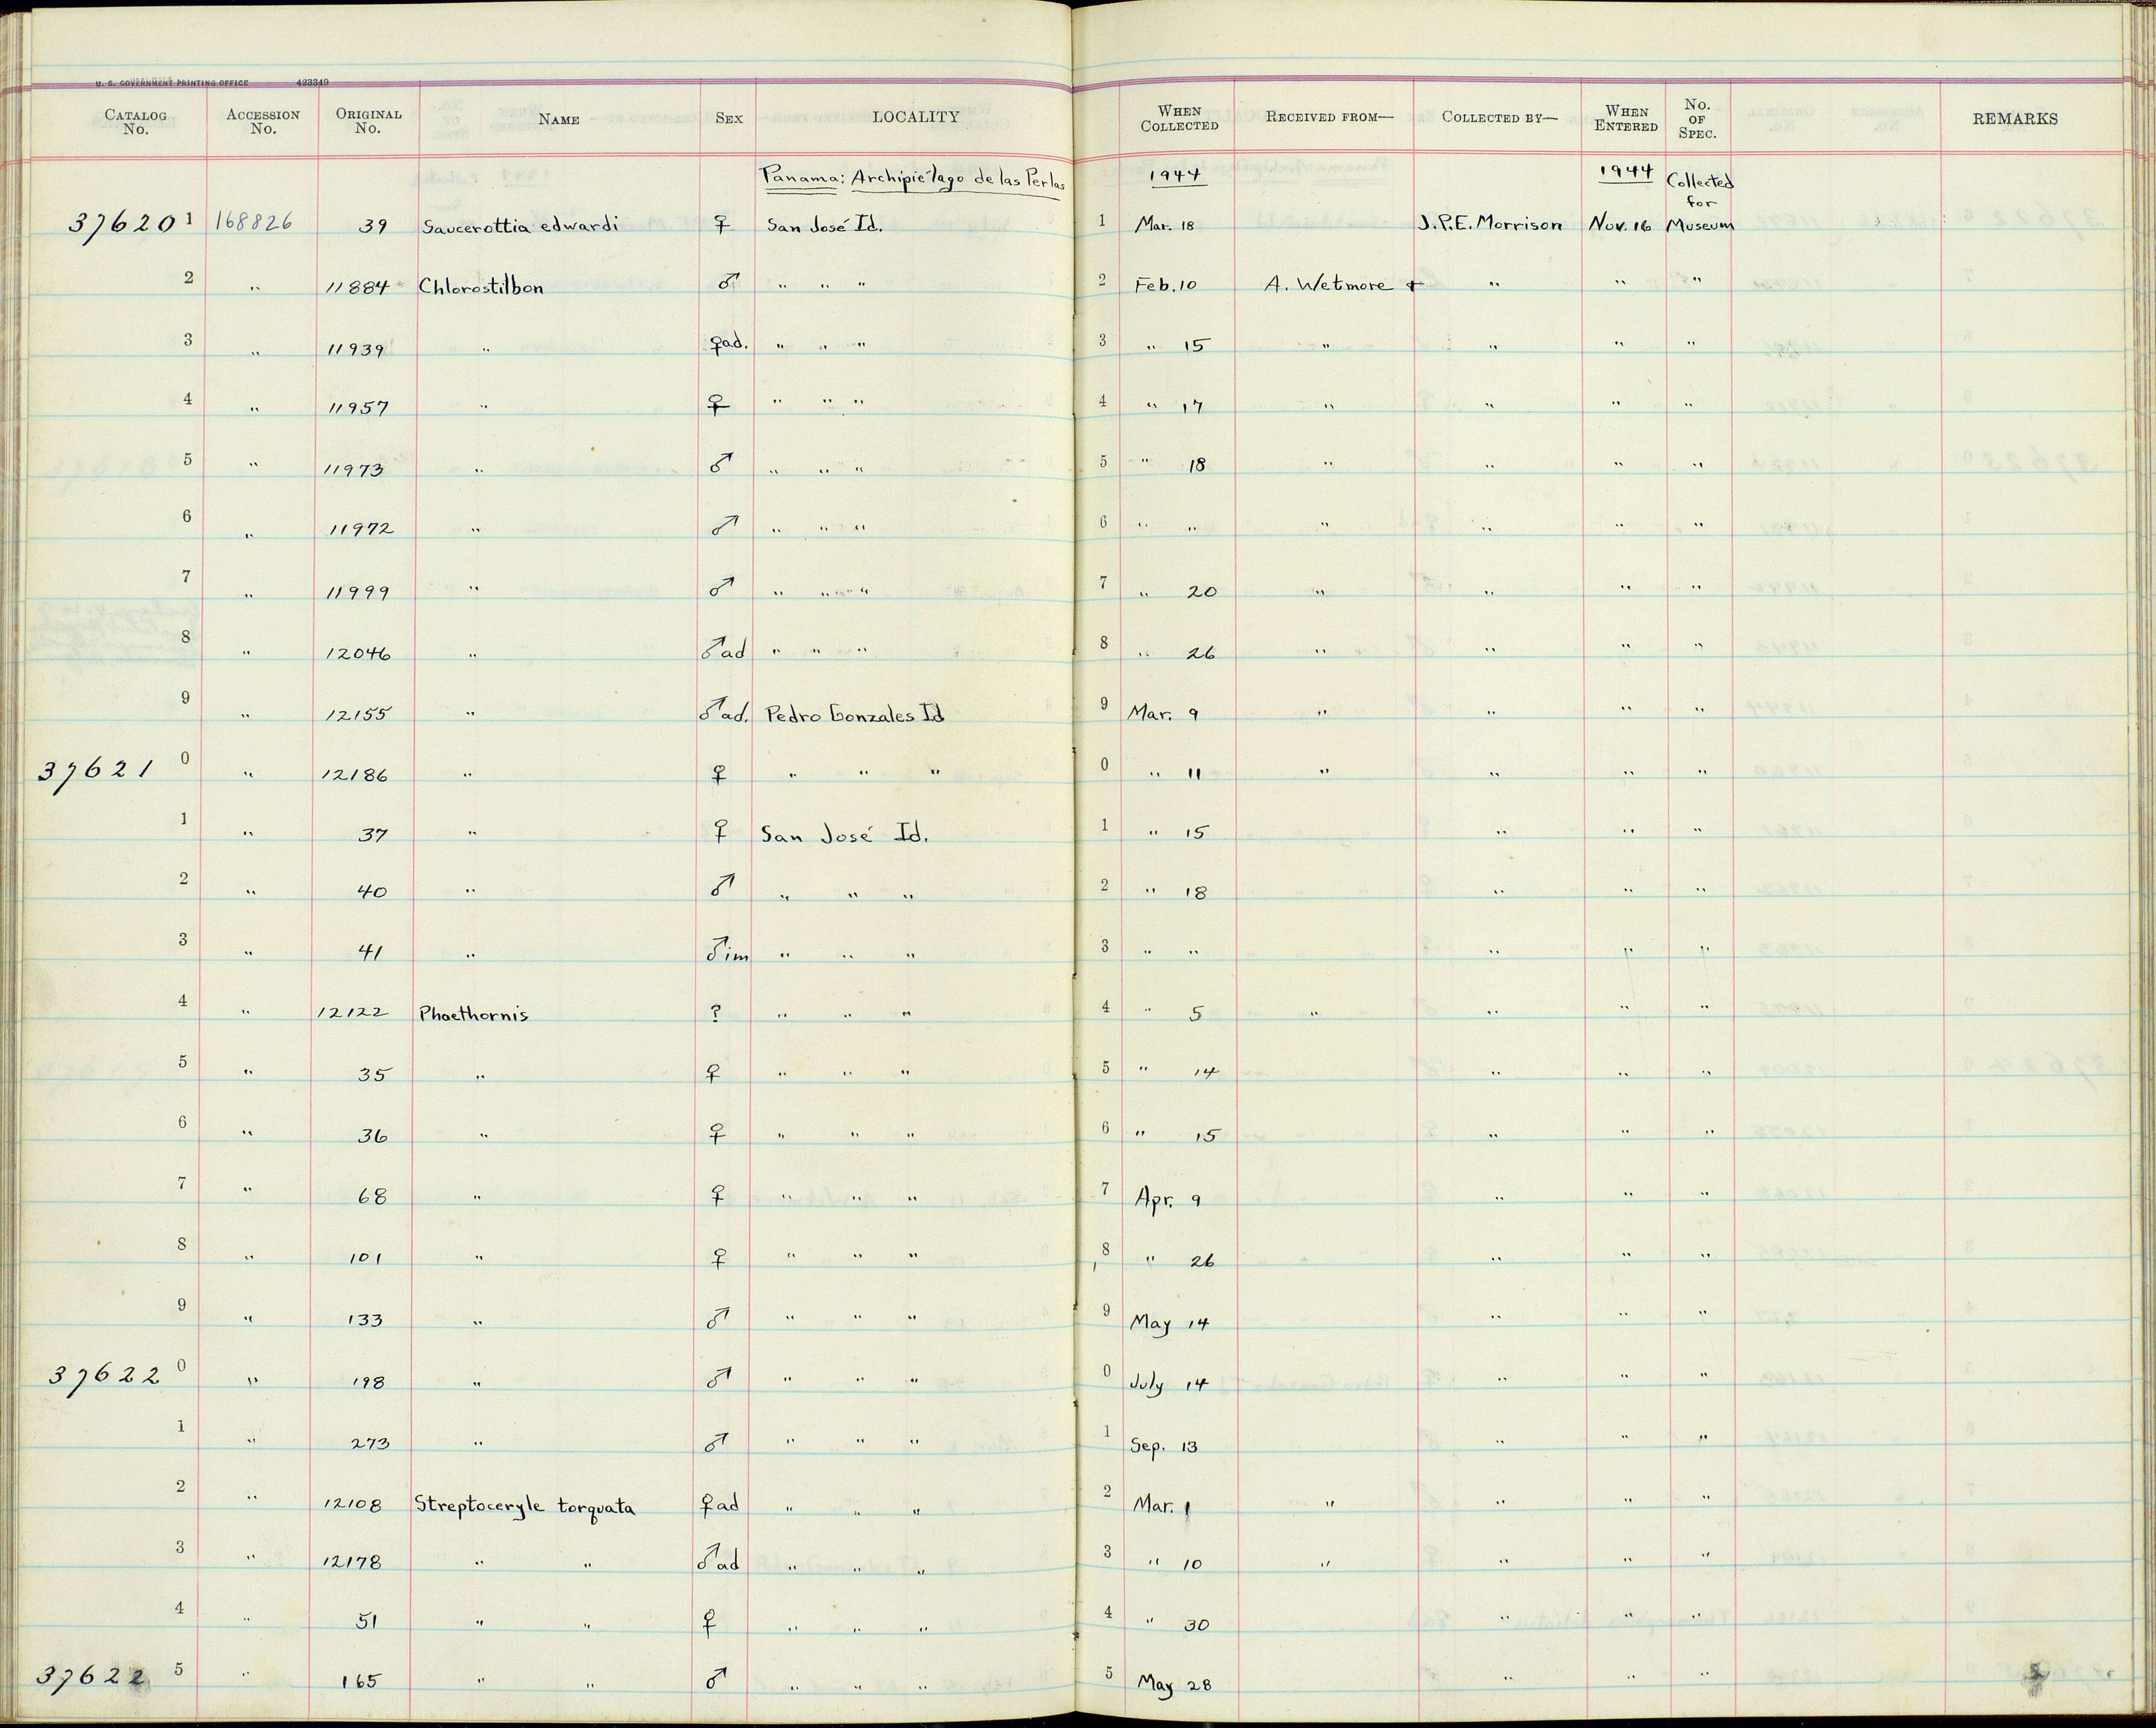 U. S. GOVERNMENT PRINTING OFFICE 423349
CATALOG No. ACCESSION No. ORIGINAL No. NAME SEX LOCALITY WHEN COLLECTED RECEIVED FROM— COLLECTED BY— WHEN ENTERED No. OF SPEC. REMARKS
Panama: Archipiélago de las Perlas 1944 1944 Collected for
37620 1 168826 39 Saucerottia edwardi ♀ San José Id. 1 Mar. 18 J.P.E. Morrison Nov. 16 Museum
2 " 11884 Chlorostilbon ♂ " " " 2 Feb. 10 A. Wetmore + " " "
3 " 11939 " ♀ad. " " " 3 " 15 " " " "
4 " 11957 " ♀ " " " 4 " 17 " " " "
5 " 11973 " ♂ " " " 5 " 18 " " " "
6 " 11972 " ♂ " " " 6 " " " " " "
7 " 11999 " ♂ " " " 7 " 20 " " " "
8 " 12046 " ♂ad " " " 8 " 26 " " " "
9 " 12155 " ♂ad. Pedro Gonzales Id 9 Mar. 9 " " " "
37621 0 " 12186 " ♀ " " " 0 " 11 " " " "
1 " 37 " ♀ San José Id. 1 " 15 " " "
2 " 40 " ♂ " " " 2 " 18 " " "
3 " 41 " ♂im " " " 3 " " " " "
4 " 12122 Phaethornis ? " " " 4 " 5 " " " "
5 " 35 " ♀ " " " 5 " 14 " " "
6 " 36 " ♀ " " " 6 " 15 " " "
7 " 68 " ♀ " " " 7 Apr. 9 " " "
8 " 101 " ♀ " " " 8 " 26 " " "
9 " 133 " ♂ " " " 9 May 14 " " "
37622 0 " 198 " ♂ " " " 0 July 14 " " "
1 " 273 " ♂ " " " 1 Sep. 13 " " "
2 " 12108 Streptoceryle torquata ♀ad " " " 2 Mar. 1 " " " "
3 " 12178 " " ♂ad " " " 3 " 10 " " " "
4 " 51 " " ♀ " " " 4 " 30 " " "
37622 5 " 165 " " ♂ " " " 5 May 28 " " "